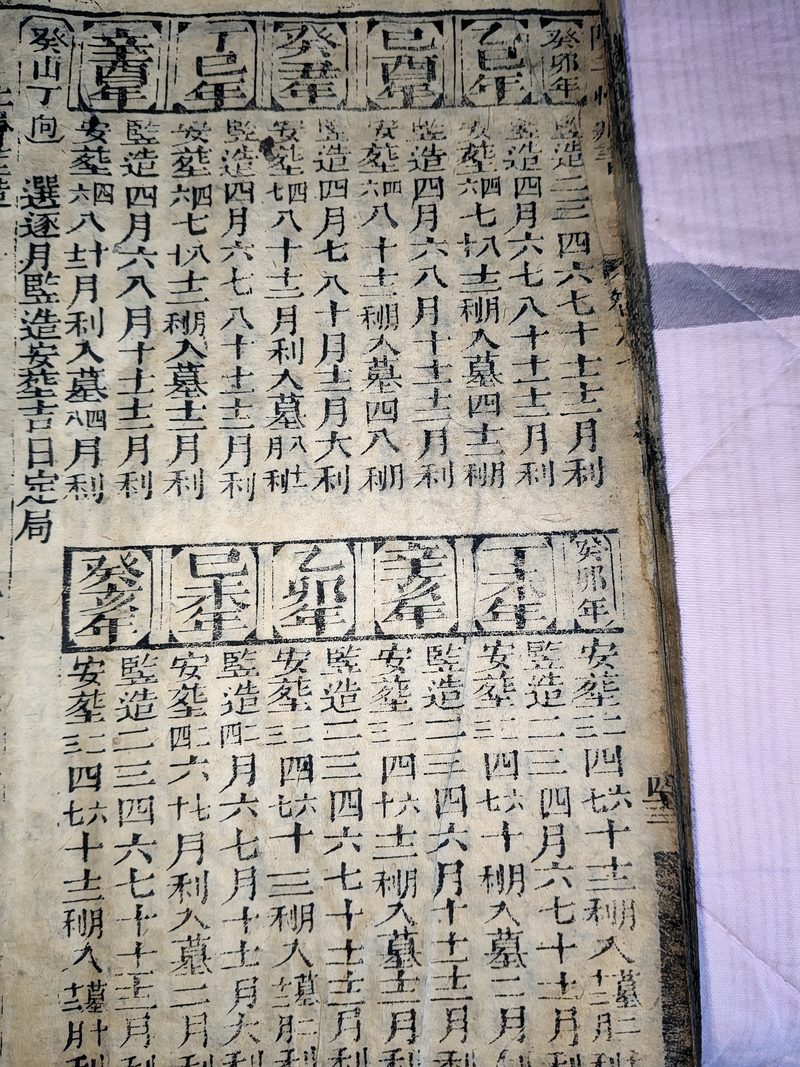 癸卯年
監造二三四六七十十一十二月利
乙巳年
監造四月六七八十十一十二月利
安塟四六七八十十二月利入墓四十二月利
己酉年
監造四月六八月十十一十二月利
安塟四六八十十二月利入墓四八月利
癸丑年
監造四月七八十月十二月大利
安塟四七八十十二月利入墓八十二月
丁巳年
監造四月六七八十十一十二月利
安塟四六七八十十二月利入墓十二月利
辛酉年
監造四月六八月十十一十二月利
安塟四六八十十二月利入墓四八月利
癸山丁向
選逐月監造安塟吉日定局
癸卯年
安塟二三四六七十十二月利入墓二
丁未年
監造二三四月六七十十二月利
安塟二三四六七十月利入墓二月
辛亥年
監造二三四六月十十一十二月利
安塟二三四六十十二月利入墓十二月利
乙卯年
監造二三四六七十十一十二月利
安塟二三四六七十
己未年
監造二四月六七月十十二月大利
安塟二四六七十月利入墓二月
癸亥年
監造二三四六七十十一十二月利
安塟二三四六七十十二月利入墓